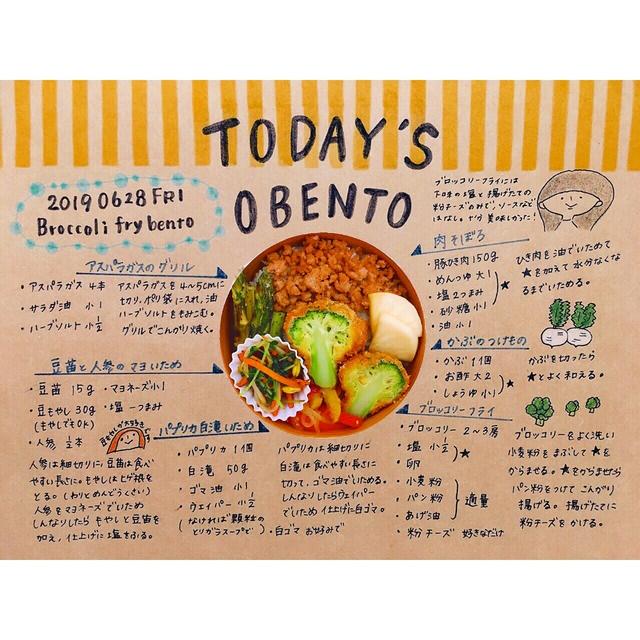 TODAY'S
OBENTO
2019 06 28 FRI
Broccoli fry bento
ブロッコリーフライには
下味の塩と揚げたての
粉チーズのみで、ソースなど
はなし。十分美味しかった!
アスパラガスのグリル
・アスパラガス 4本
・サラダ油 小1
・ハーブソルト 小1/2
アスパラガスを4〜5cmに
切り、ポリ袋に入れ、油
ハーブソルトをもみこむ。
グリルでこんがり焼く。
豆苗と人参のマヨいため
・豆苗 15g
・マヨネーズ小1
・豆もやし 30g
(もやしでもOK)
・塩 一つまみ
・人参 1/2本
人参は細切りに、豆苗は食べ
やすい長さに。もやしはヒゲ根を
とる。(わりとめんどうくさい)
人参をマヨネーズでいため
しんなりしたら もやしと豆苗を
加え、仕上げに塩をふる。
パプリカ白滝いため
・パプリカ 1個
・白滝 50g
・ゴマ油 小1
・ウェイパー 小1/2
(なければ顆粒の
とりガラスープで)
・白ゴマ お好みで
パプリカは細切りに
白滝は食べやすい長さに
切って、ゴマ油でいためる。
しんなりしたらウェイパー
でいため 仕上げに白ゴマ。
肉そぼろ
・豚ひき肉150g
・めんつゆ 大1
・塩2つまみ
・砂糖小1
・油 小1
★
ひき肉を油でいためて
★を加えて 水分なくな
るまでいためる。
かぶのつけもの
・かぶ 1個
・お酢 大2
・しょうゆ 小1
★
かぶを切ったら
★とよく和える。
ブロッコリーフライ
・ブロッコリー 2〜3房
・塩 小1/2
★
・卵
・小麦粉
・パン粉
・あげ油
適量
・粉チーズ 好きなだけ
ブロッコリーをよく洗い
小麦粉をまぶして★を
からませる。★をからませたら
パン粉をつけて こんがり
揚げる。揚げたてに
粉チーズをかける。